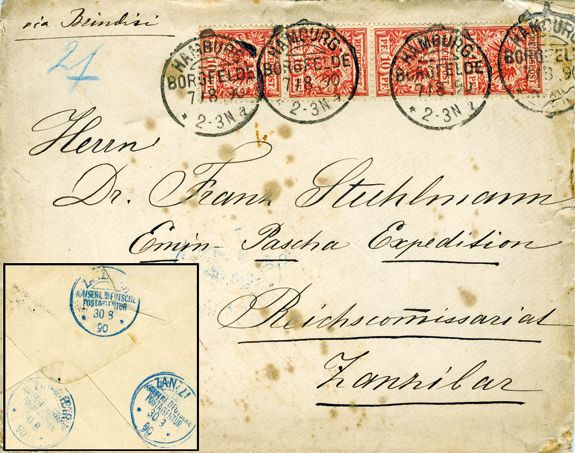 via Brindisi
21
HAMBURG-
BORGFELDE
7/8.90
* 2-3N a
HAMBURG-
BORGFELDE
7/8.90
* 2-3N a
HAMBURG-
BORGFELDE
7/8.90
* 2-3N a
HAMBURG-
BORGFELDE
7/8.90
10 PF
Herrn
Dr. Franz Stuhlmann
Emin-Pascha Expedition
Reichscomissariat
Zanzibar
KAISERL. DEUTSCHE
POSTAGENTUR
30 8
90
ZANZI
KAISERL. DEUTSCHE
POSTAGENTUR
30 8
90
30 8
90